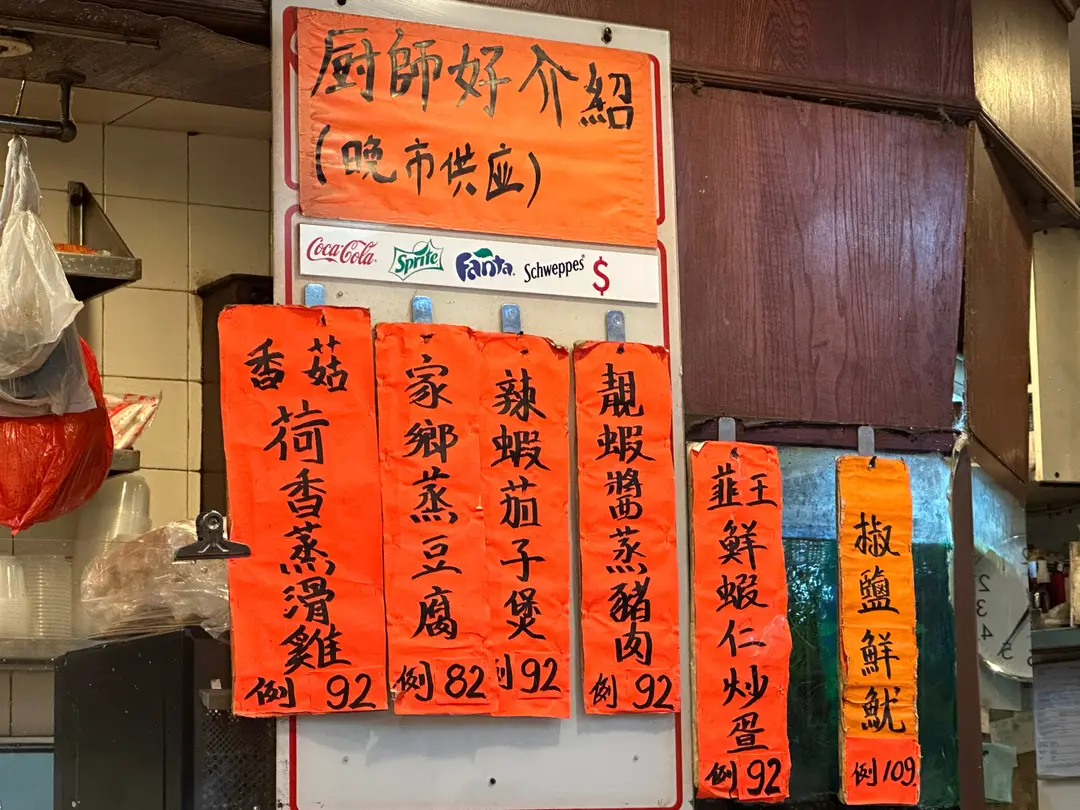 厨師好介紹
(晚市供应)
Coca-Cola Sprite Fanta Schweppes $
香菇
荷香蒸滑雞
例 92
家鄉蒸豆腐
例 82
辣蝦茄子煲
例 92
靚蝦醬蒸豬肉
例 92
韮王
鮮蝦仁炒蛋
例 92
椒鹽鮮魷
例 109
2
3
4
5